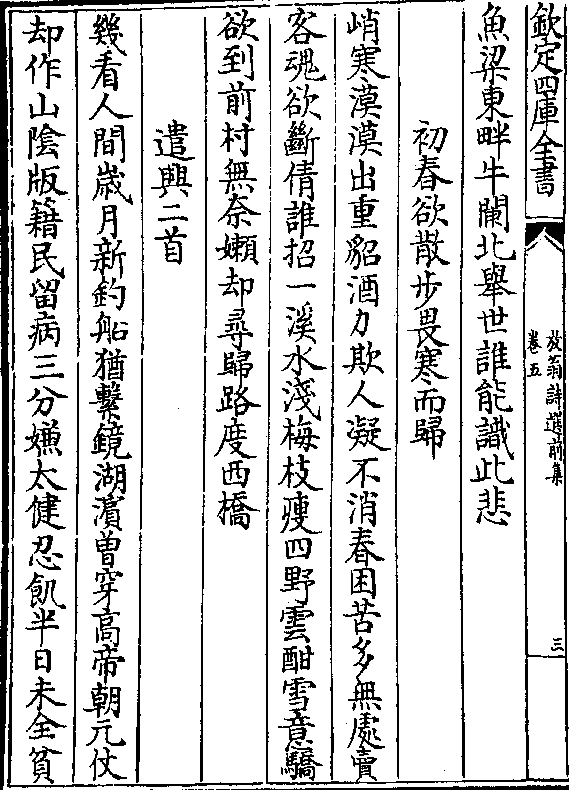 欽定四庫全書
放翁詩選前集
卷五
三
魚梁東畔牛闌北舉世誰能識此悲
初春欲散步畏寒而歸
峭寒漠漠出重貂酒力欺人凝不消春困苦多無處賣
客魂欲斷倩誰招一溪水淺梅枝瘦四野雲酣雪意驕
欲到前村無奈嬾却尋歸路度西橋
遣興二首
幾看人間歲月新釣船猶繫鏡湖濵曽穿高帝朝元仗
却作山陰版籍民留病三分嫌太健忍飢半日未全貧